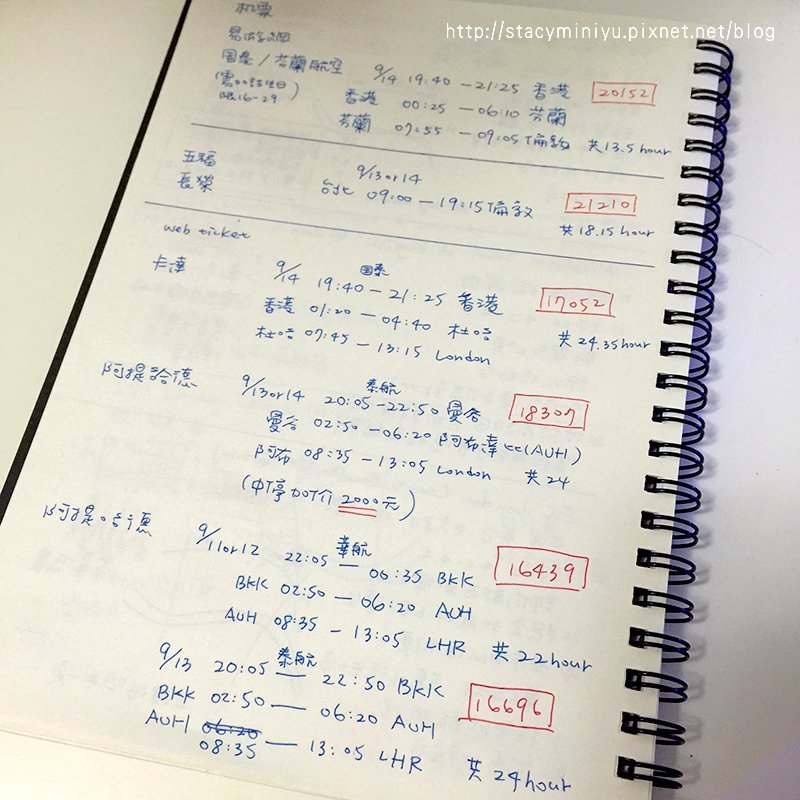 http://stacyminiyu.pixnet.net/blog
机票
易遊網
国泰/芬蘭航空 9/14 19:40 - 21:25 香港 20152
(需加註生日 香港 00:25 - 06:10 芬蘭
限16-29) 芬蘭 07:55 - 09:05 倫敦 共13.5hour
五福 9/13or14
長榮 台北 09:00 - 19:15 倫敦 21210
共18.15 hour
web ticket
卡達 9/14 国泰 19:40 - 21:25 香港 17052
香港 01:20 - 04:40 杜哈 共24.35hour
杜哈 07:45 - 13:15 London
阿提哈德 9/13or14 泰航 20:05 - 22:50 曼谷 18307
曼谷 02:50 - 06:20 阿布達比(AUH)
阿布 08:35 - 13:05 London 共24
(中停加价2000元)
阿提哈德 9/11or12 22:05 華航 - 00:35 BKK 16439
BKK 02:50 - 06:20 AUH
AUH 08:35 - 13:05 LHR 共22hour
9/13 20:05 泰航 - 22:50 BKK 16696
BKK 02:50 - 06:20 AUH
AUH 06:20
08:35 - 13:05 LHR 共24hour